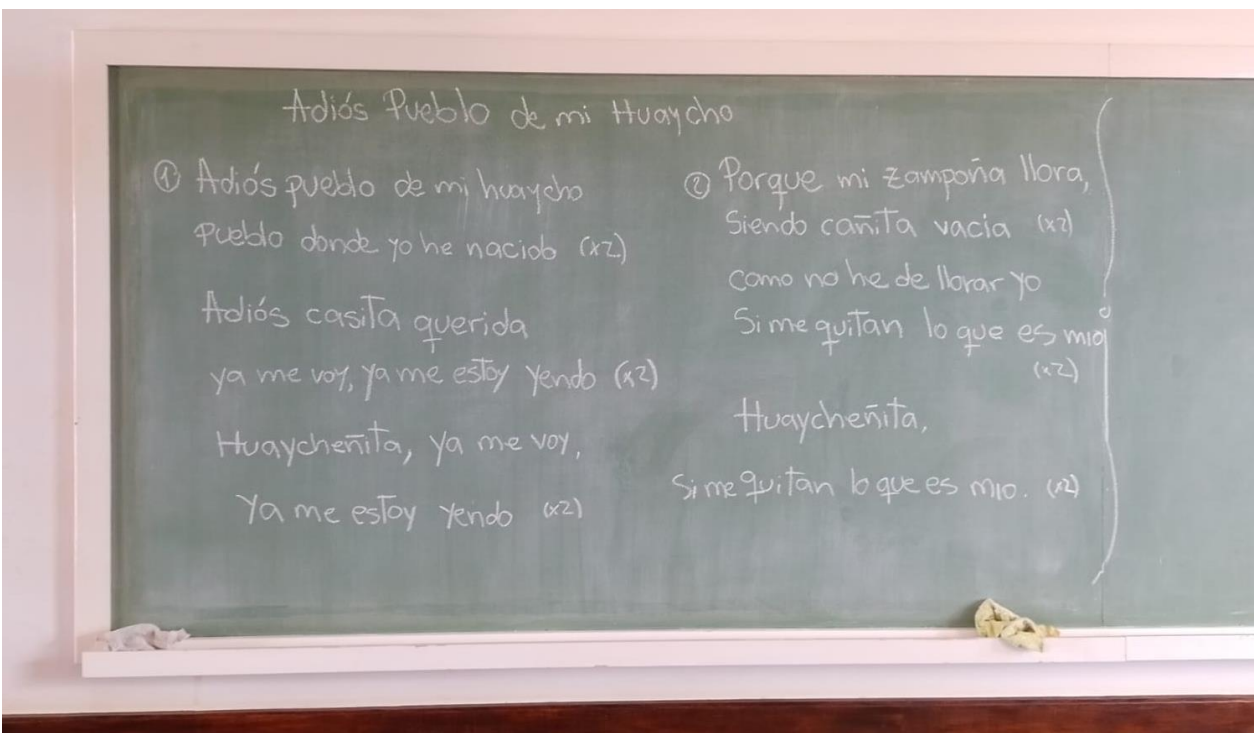 Adiós Pueblo de mi Huaycho
① Adiós pueblo de mi huaycho
pueblo donde yo he nacido (x2)
Adiós casita querida
ya me voy, ya me estoy yendo (x2)
Huaycheñita, ya me voy,
Ya me estoy yendo (x2)
② Porque mi zampoña llora,
Siendo cañita vacia (x2)
como no he de llorar yo
Si me quitan lo que es mio
(x2)
Huaycheñita,
Si me quitan lo que es mio. (x2)